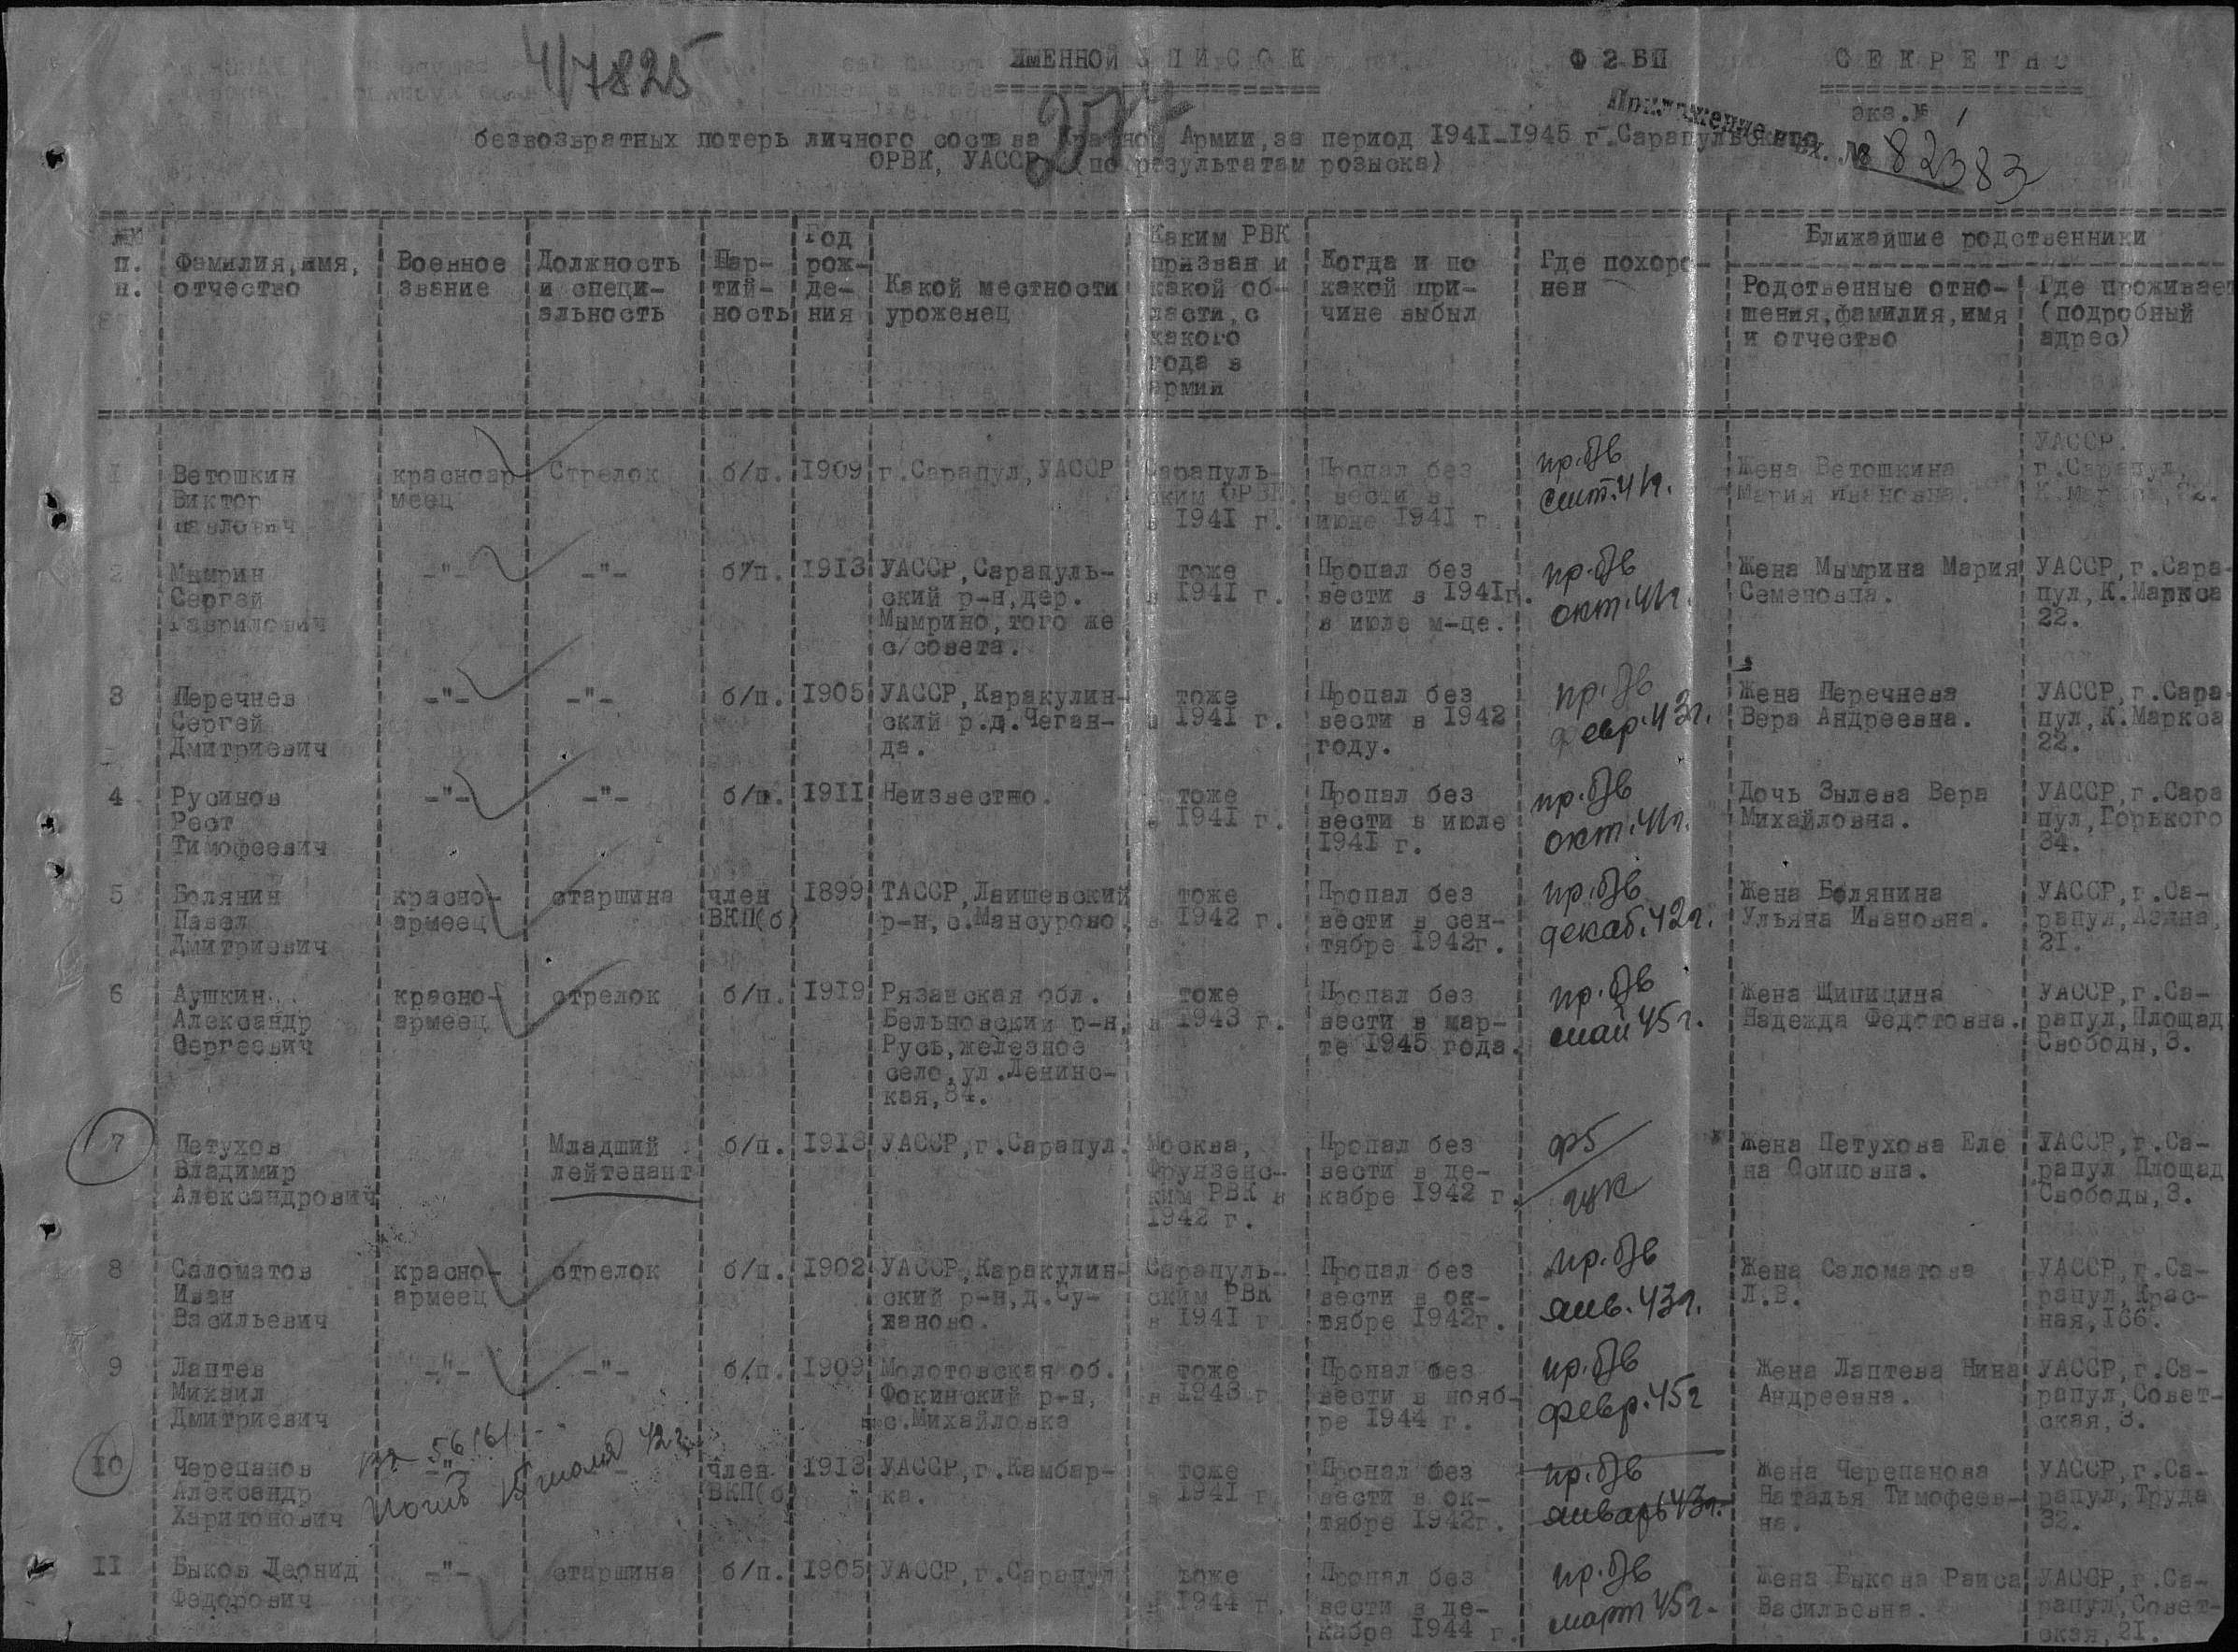 4/7825
ИМЕННОЙ СПИСОК
Ф 2 БП
СЕКРЕТНО
экз.№ 1
Приложение к вх. № 82383
безвозвратных потерь личного состава Красной Армии, за период 1941-1945 г. Сарапульского
ОРВК, УАССР (по результатам розыска)
№№ п. п.
Фамилия, имя, отчество
Военное звание
Должность и специальность
Партийность
Год рождения
Какой местности уроженец
Каким РВК призван и какой области, с какого года в армии
Когда и по какой причине выбыл
Где похоронен
Ближайшие родственники
Родственные отношения, фамилия, имя и отчество
Где проживает (подробный адрес)
1 Ветошкин Виктор Павлович
красноармеец
Стрелок
б/п.
1909
г.Сарапул, УАССР
Сарапульским ОРВК в 1941 г.
Пропал без вести в июне 1941 г.
пр. б/в сент. 41г.
Жена Ветошкина Мария Ивановна.
УАССР. г.Сарапул, К.Маркса,
2 Мымрин Сергей Гаврилович
-"-
-"-
б/п.
1913
УАССР, Сарапульский р-н, дер. Мымрино, того же с/совета.
тоже в 1941 г.
Пропал без вести в 1941г. в июле м-це.
пр. б/в окт. 41г.
Жена Мымрина Мария Семеновна.
УАССР, г.Сарапул, К.Маркса 22.
3 Перечнев Сергей Дмитриевич
-"-
-"-
б/п.
1905
УАССР, Каракулинский р.д. Чеганда.
тоже в 1941 г.
Пропал без вести в 1942 году.
пр. б/в февр. 43г.
Жена Перечнева Вера Андреевна.
УАССР, г.Сарапул, К.Маркса 22.
4 Русинов Рест Тимофеевич
-"-
-"-
б/п.
1911
Неизвестно.
тоже в 1941 г.
Пропал без вести в июле 1941 г.
пр. б/в окт. 41г.
Дочь Зылева Вера Михайловна.
УАССР, г.Сарапул, Горького 34.
5 Болянин Павел Дмитриевич
красноармеец
старшина
член ВКП(б)
1899
ТАССР, Лаишевский р-н, с.Мансурово.
тоже в 1942 г.
Пропал без вести в сентябре 1942г.
пр. б/в декаб. 42г.
Жена Болянина Ульяна Ивановна.
УАССР, г.Сарапул, 21.
6 Аушкин Александр Сергеевич
красноармеец
стрелок
б/п.
1919
Рязанская обл. Бельковский р-н, Русь, железное село, ул.Ленинская, 84.
тоже в 1943 г.
Пропал без вести в марте 1945 года.
пр. б/в май 45г.
Жена Щипицина Надежда Федотовна.
УАССР, г.Сарапул, Площад Свободы, 3.
7 Петухов Владимир Александрович
Младший лейтенант
б/п.
1913
УАССР, г.Сарапул.
Москва, Фрунзенским РВК в 1942 г.
Пропал без вести в декабре 1942 г.
ф5 гук
Жена Петухова Елена Осиповна.
УАССР, г.Сарапул Площад Свободы, 3.
8 Саломатов Иван Васильевич
красноармеец
стрелок
б/п.
1902
УАССР, Каракулинский р-н, д.Суханово.
Сарапульским РВК в 1941 г
Пропал без вести в октябре 1942г.
пр. б/в янв. 43г.
Жена Саломатова Л.В.
УАССР, г.Сарапул, Красная, 166.
9 Лаптев Михаил Дмитриевич
-"-
-"-
б/п.
1909
Молотовская об. Фокинский р-н, с.Михайловка
тоже в 1943 г
Пропал без вести в ноябре 1944 г.
пр. б/в февр. 45г
Жена Лаптева Нина Андреевна.
УАССР, г.Сарапул, Советская, 3.
10 Черепанов Александр Харитонович
-"-
56161
погиб 15 июля 42г.
член ВКП(б)
1913
УАССР, г.Камбарка.
тоже в 1941 г
Пропал без вести в октябре 1942г.
пр. б/в январь 43г.
Жена Черепанова Наталья Тимофеевна.
УАССР, г.Сарапул, Труда 32.
11 Быков Леонид Федорович
-"-
старшина
б/п.
1905
УАССР, г.Сарапул
тоже в 1944 г.
Пропал без вести в декабре 1944 г.
пр. б/в март 45г.
Жена Быкова Раиса Васильевна.
УАССР, г.Сарапул, Советская, 21.